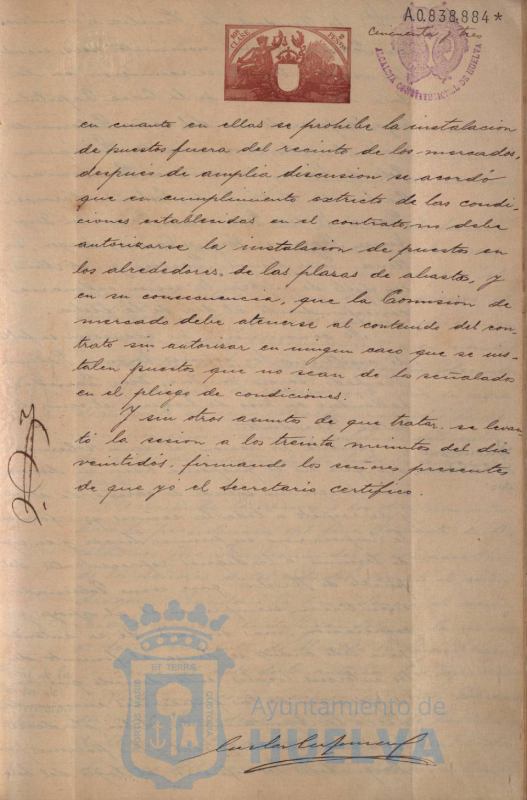 A0.838.884*
Cincuenta y tres
10ª CLASE
2 PESOS
ALCALDIA CONSTITUCIONAL DE HUELVA
en cuanto en ellas se prohibe la instalacion
de puestos fuera del recinto de los mercados,
despues de amplia discusion se acordó
que en cumplimiento extricto de las condi-
ciones establecidas en el contrato, no debe
autorizarse la instalacion de puestos en
los alrededores de las plazas de abastos, y
en su consecuencia, que la Comision de
mercado debe atenerse al contenido del con-
trato sin autorizar en ningun caso que se ins-
talen puestos que no sean de los señalados
en el pliego de condiciones.
Y sin otros asuntos de que tratar se levan
tó la sesion a los treinta minutos del dia
veintidos, firmando los señores presentes
de que yo el Secretario certifico.
ET TERRÆ
PORTUS MARIS
CUSTODIA
Ayuntamiento de
HUELVA